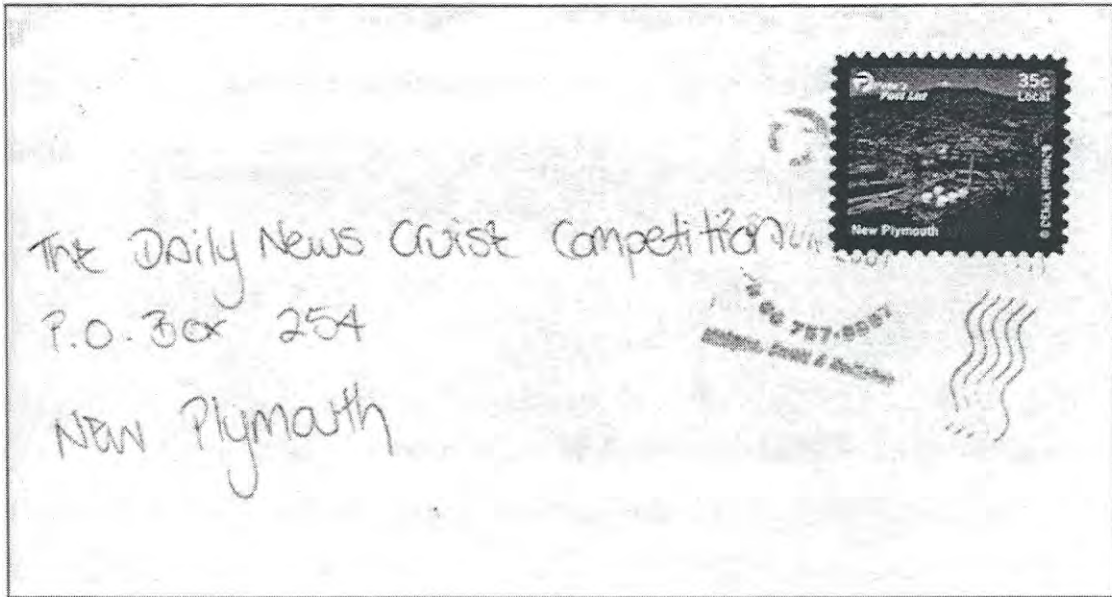 35c
Local
Post Ltd
New Plymouth
The Daily News Cruise Competition
P.O. Box 254
New Plymouth